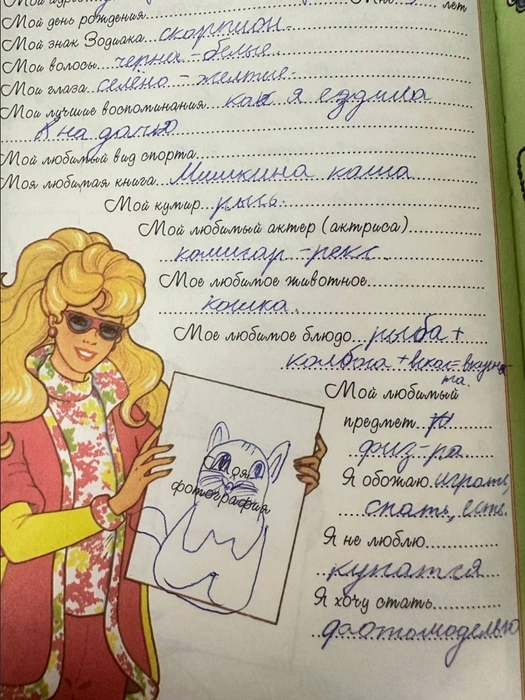 Мой день рождения
лет
Мой знак Зодиака скорпион
Мои волосы черно-белые
Мои глаза зелёно-желтые.
Мои лучшие воспоминания как я ездила
на
Мой любимый вид спорта
Моя любимая книга Мишкина каша
Мой кумир рысь.
Мой любимый актер (актриса)
-рекс
Мое любимое животное
кошка.
Мое любимое блюдо рыба+
колбаса+
та.
Мой любимый
предмет
физ-ра
Моя
фотография
Я обожаю играть,
спать, есть.
Я не люблю
купатся
Я хочу стать
фотомоделью